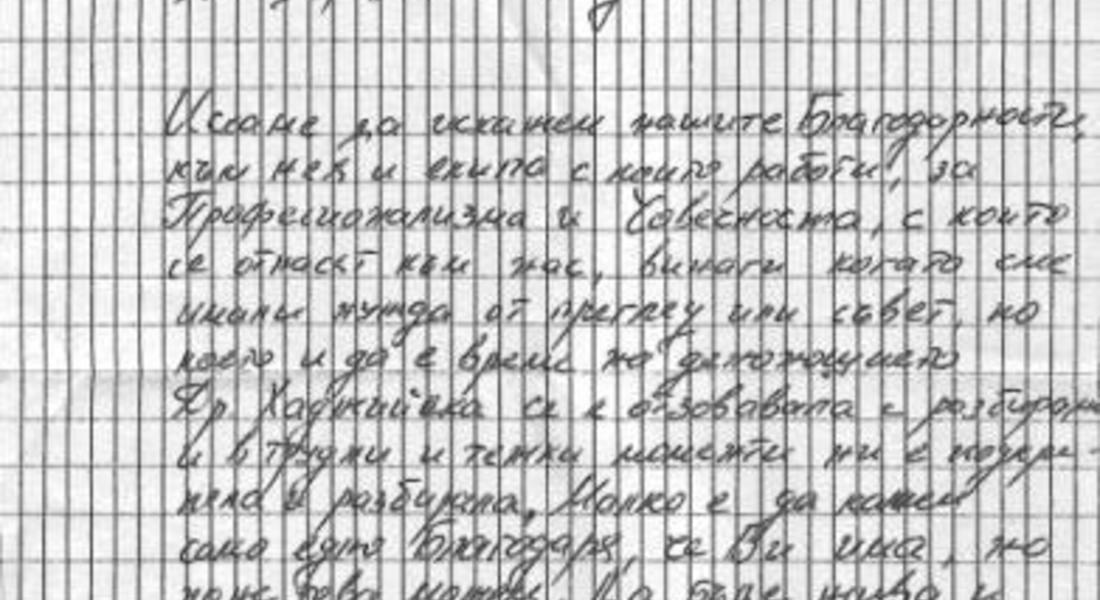 Искаме да искажем нашите Благодарности,
към нея и екипа с които работи, за
Професионализма и Човесността, с които
се отнасят към нас, винаги когато сме
имали нужда от преглед или съвет, по
което и да е време на денонощието
Др. Хаджийска се е отзовавала с
и в трудни и тежки моменти ни е подкре-
пяла и разбирала, Малко е да кажем
само едно Благодаря, че Ви има, но
поне това можем. Да бъде жива и